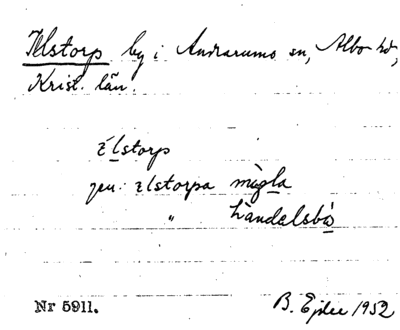 Elstorp by i Andrarums sn, Albo hd,
Krist. län.
ælstorp
gen. ælstorpa mùgla
" hàndelsbo
Nr 5911.
B. Ejder 1952